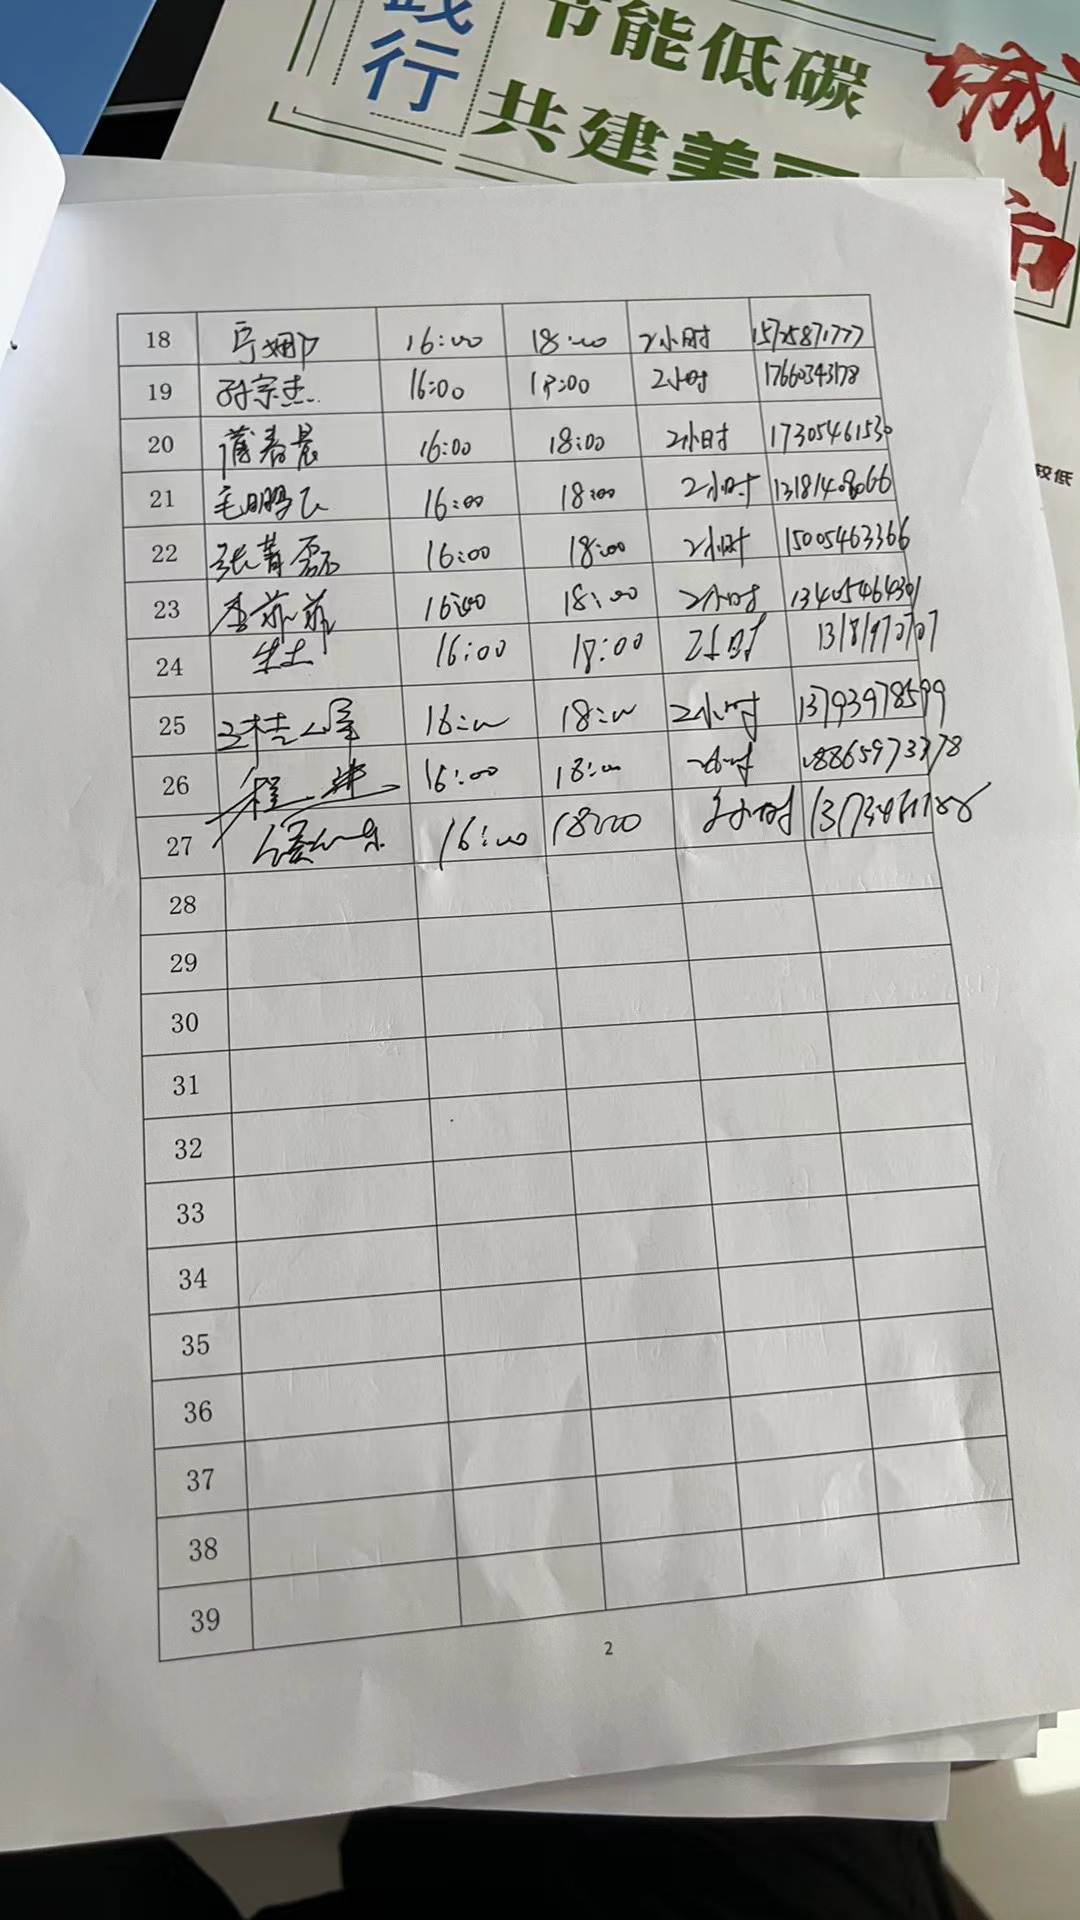 践
行
节能低碳
共建美丽
城
市
较低
18 16:00 18:00 2小时 15725871777
19 孙宗杰 16:00 18:00 2小时 17660343178
20 蒲春晨 16:00 18:00 2小时 17305461530
21 毛鹏飞 16:00 18:00 2小时 13181408066
22 张菁磊 16:00 18:00 2小时 15005463366
23 李菲菲 16:00 18:00 2小时
24 16:00 18:00 2小时
25 16:00 18:00 2小时 13793978599
26 程进 16:00 18:00 2小时 18865973378
27 16:00 18:00 2小时
28
29
30
31
32
33
34
35
36
37
38
39
2